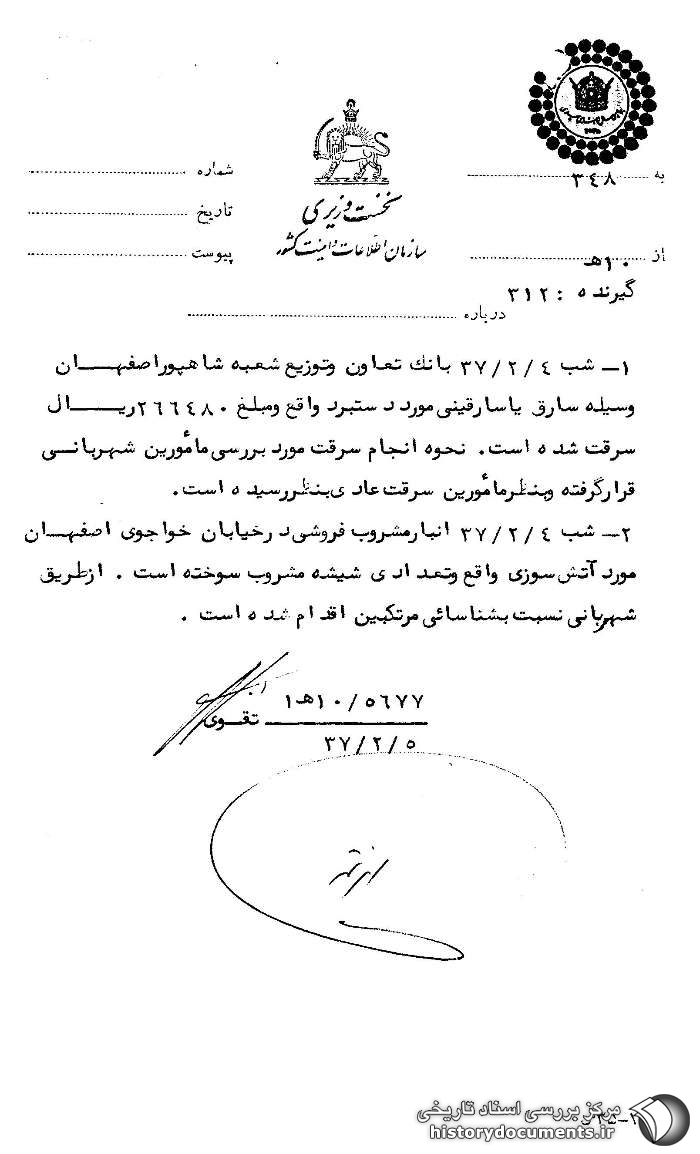 به ۳۴۸
شماره
نخست وزیری
تاریخ
سازمان اطلاعات و امنیت کشور
پیوست
از ۱۰هـ
گیرنده : ۳۱۲
درباره
۱- شب ۳۷/۲/۴ بانك تعاون وتوزیع شعبه شاهپوراصفهـــان
وسیله سارق یاسارقینی مورد دستبرد واقع ومبلغ ۲۶۶۴۸۰ریـــال
سرقت شده است. نحوه انجام سرقت مورد بررسی مأمورین شهربانـی
قرارگرفته وبنظرمأمورین سرقت عادی بنظررسیده است.
۲- شب ۳۷/۲/۴ انبارمشروب فروشی درخیابان خواجوی اصفهـان
مورد آتش سوزی واقع وتعدادی شیشه مشروب سوخته است . ازطریق
شهربانی نسبت بشناسائی مرتکبین اقدام شده است .
۱۰/۵۶۷۷هـ۱
تقوی
۳۷/۲/۵
مرکز بررسی اسناد تاریخی
historydocuments.ir